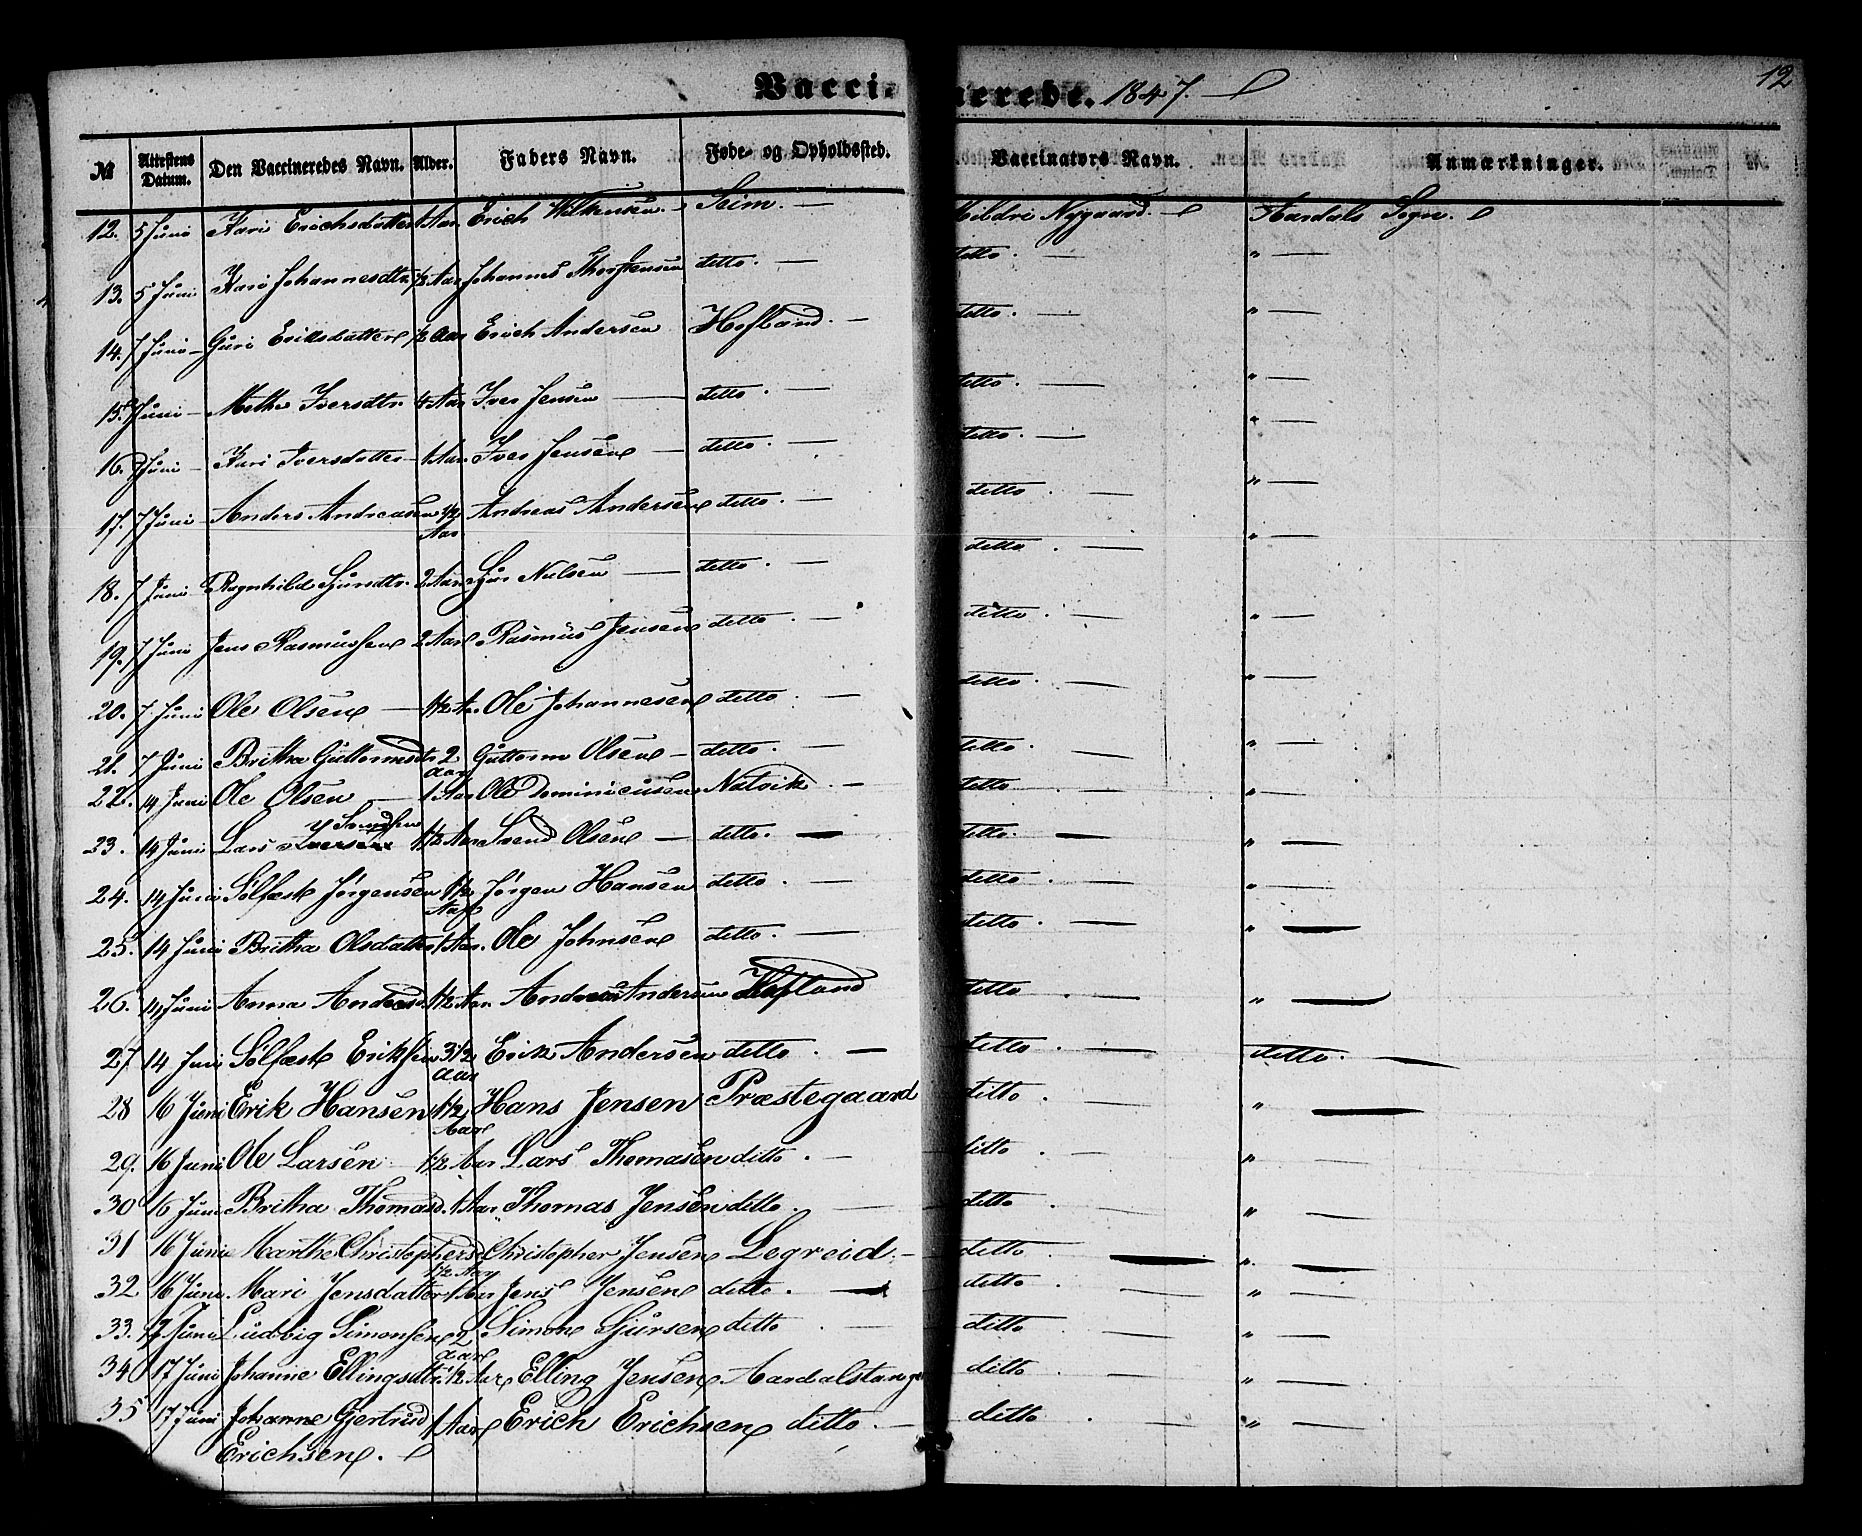 Vaccinerede. 1847. 12
№ Attestens Datum. Den Vaccineredes Navn. Alder. Faders Navn. Føde- og Opholdssted. Vaccinators Navn. Anmærkninger.
12. 5 Juni Kari Erichsdatter 1 Aar Erich Seim. — Mildri Nygaard. — Aardals Sogn.
13. 5 Juni Kari Johannesdtr. 1/2 Aar Johannes Thorstensen ditto. — ditto. — " —
14. 7 Juni — Guri Eriksdatter 1/2 Aar Erich Andersen Hofland. — ditto. — " —
15. 7 Juni — Methe Iversdtr. 4 Aar Iver Jensen — ditto. — ditto. — " —
16. 7 Juni — Kari Iversdatter — 1 Aar Iver Jensen — ditto. — ditto. — " —
17. 7 Juni — Anders Andreasen 1/2 Aar Andreas Andersen ditto. — ditto. — " —
18. 7 Juni Ragnhild Sjursdtr. 2 Aar Sjur Nielsen — ditto. — ditto. — " —
19. 7 Juni Jens Rasmussen 2 Aar Rasmus Jensen ditto. — ditto. — " —
20. 7 Juni Ole Olsen — 1 1/2 Aar Ole Johannesen ditto. — ditto. — " —
21. 7 Juni Britha Guttormsdtr. 2 Aar Guttorm Olsen — ditto. — ditto. — " —
22. 14 Juni Ole Olsen — 1 Aar Ole Dominicusen Natvik. — ditto — " —
23. 14 Juni Lars Svendsen Iversen 1 1/2 Aar Svend Olsen — ditto. — ditto. — " —
24. 14 Juni Solfest Jørgensen 1 1/2 Aar Jørgen Hansen ditto. — ditto. — " —
25. 14 Juni Britha Olsdatter 1 Aar. Ole Johnsen ditto. — ditto. — " —
26. 14 Juni Anna Andersd. 1 1/2 Aar Andreas Andersen Hofland ditto. — " —
27 14 Juni Solfest Eriksen 3 1/2 Aar Erik Andersen ditto. — ditto. — ditto. —
28 16 Juni Erik Hansen 1 1/2 Aar Hans Jensen Præstegaard ditto. — " —
29. 16 Juni Ole Larsen — 1 1/2 Aar Lars Thomasen ditto. — ditto. — " —
30 16 Juni Britha Thomasd. 1 Aar Thomas Jensen ditto. — ditto. — " —
31 16 Juni Marthe Christophersd. 1 1/2 Aar Christopher Jensen Legreid. — ditto. — " —
32 16 Juni Mari Jensdatter 1 Aar Jens Jensen ditto. — ditto. — " —
33. 17 Juni Ludvig Simonsen 2 Aar Simon Sjursen ditto. — ditto. — " —
34 17 Juni Johanne Ellingsdtr. 1/2 Aar Elling Jensen Aardalstangen ditto. — " —
35 17 Juni Johanne Gjertrud 1 Aar Erich Erichsen ditto. — ditto. — " —
Erichsen.